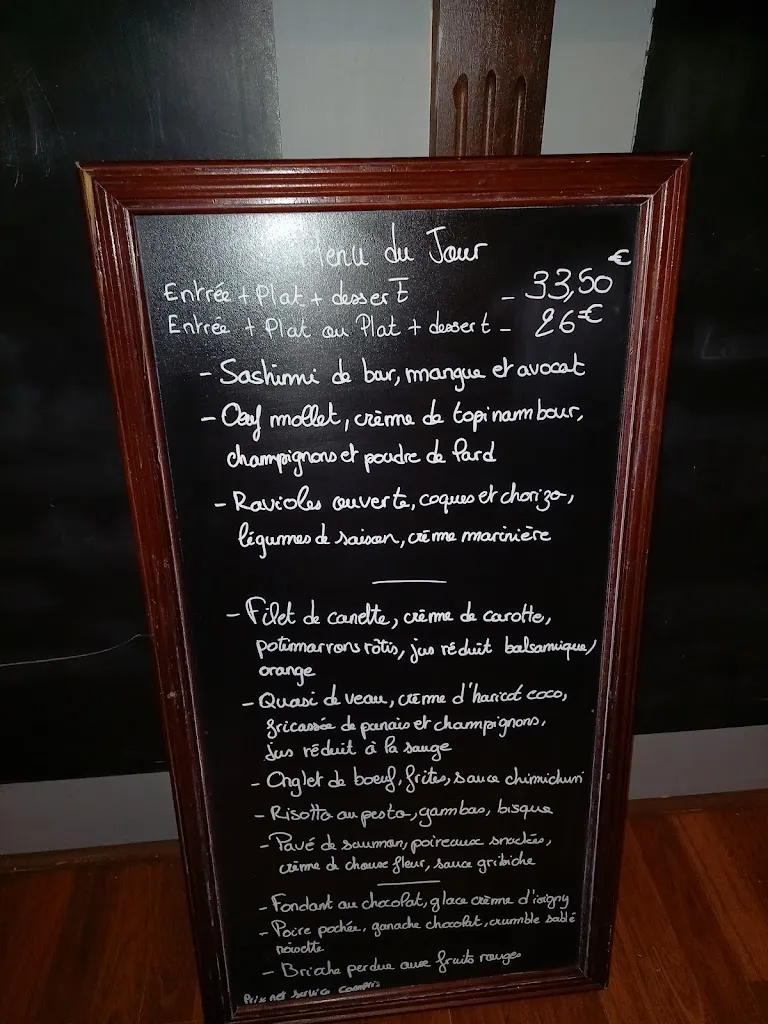 Menu du Jour
Entrée + Plat + dessert - 33,50€
Entrée + Plat ou Plat + dessert - 26€
- Sashimi de bar, mangue et avocat
- Oeuf mollet, crème de topinambour,
champignons et poudre de lard
- Ravioles ouverte, coques et chorizo,
légumes de saison, crème marinière
- Filet de canette, crème de carotte,
potimarrons rôtis, jus réduit balsamique/
orange
- Quasi de veau, crème d'haricot coco,
fricassée de panais et champignons,
jus réduit à la sauge
- Onglet de boeuf, frites, sauce chimichuri
- Risotto au pesto, gambas, bisque
- Pavé de saumon, poireaux snackés,
crème de choux fleur, sauce gribiche
- Fondant au chocolat, glace crème d'isigny
- Poire pochée, ganache chocolat, crumble sablé
noisette
- Brioche perdue aux fruits rouges
Prix net service compris